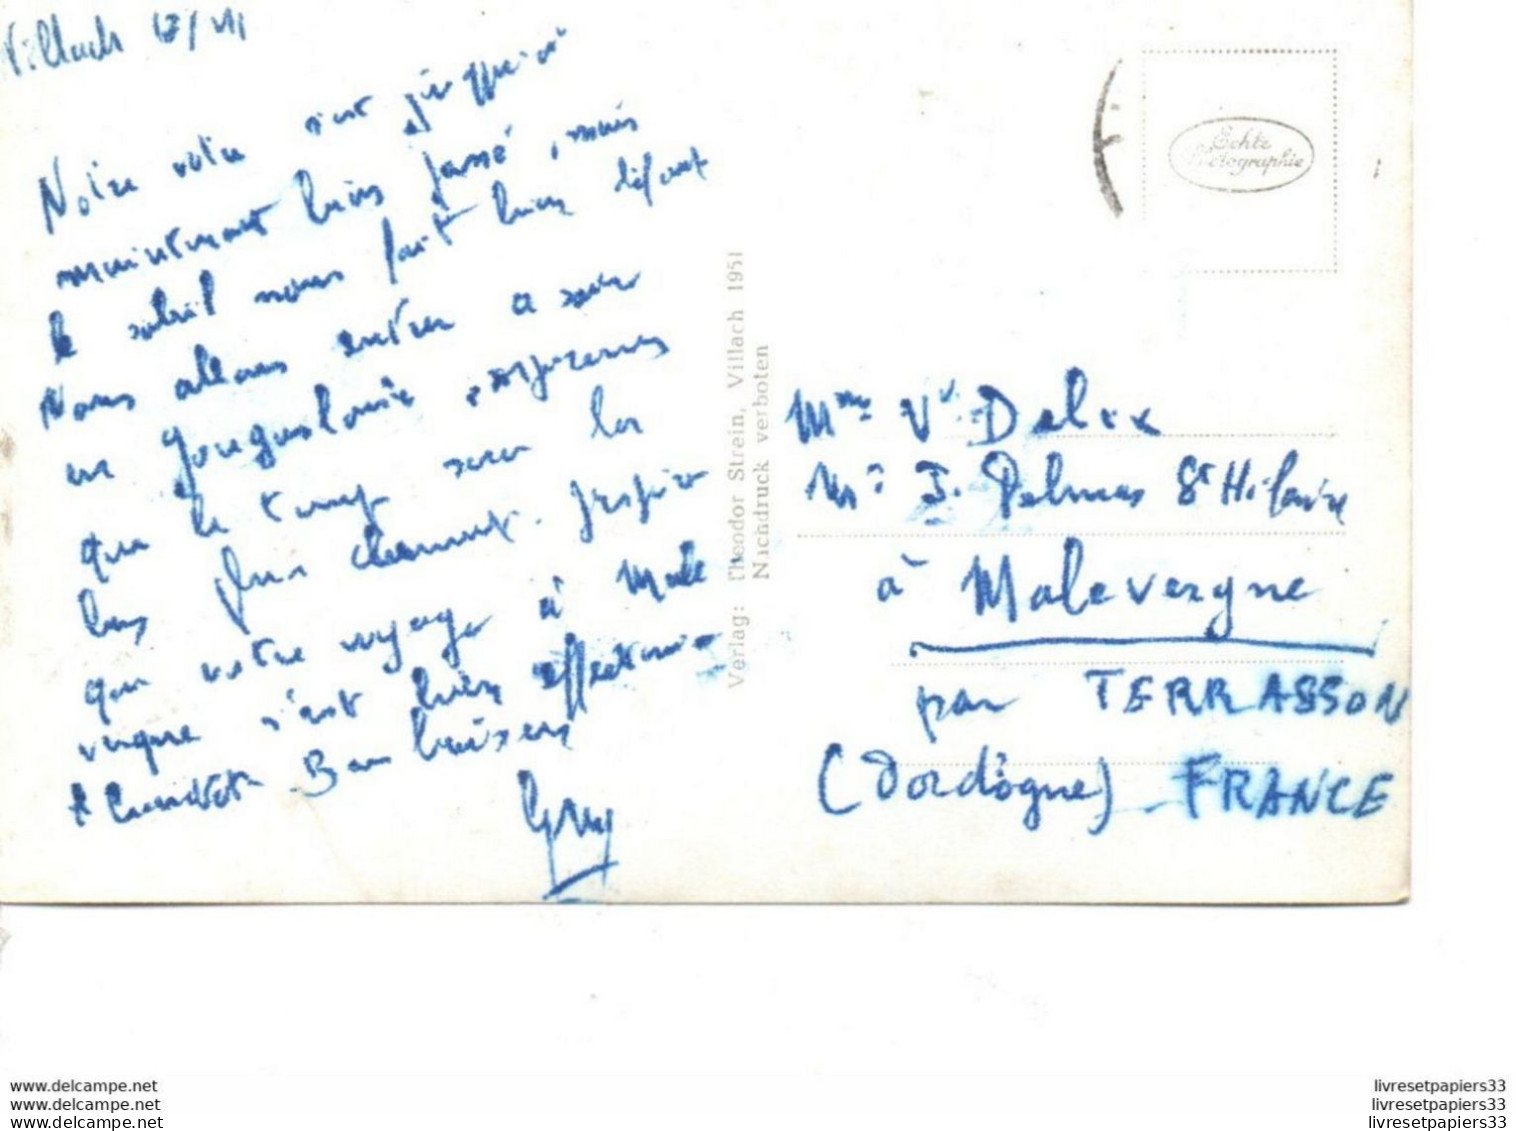 Villach 13/VII
Notre votre s'est jusqu'ici
maintenant bien passé, mais
le soleil nous fait bien défaut
Nous allons entrer ce soir
en Yougoslavie, espérons
que le temps sera là
bas plus clément. J'espère
que votre voyage à Male
vergne s'est bien effectué
Bons baisers
Guy
Verlag: Theodor Strein, Villach 1951
Nachdruck verboten
Echte
Photographie
Mme Vve Delix
J. Delmas St Hilaire
à Malevergne
par TERRASSON
(Dordogne) FRANCE
www.delcampe.net
www.delcampe.net
www.delcampe.net
livresetpapiers33
livresetpapiers33
livresetpapiers33